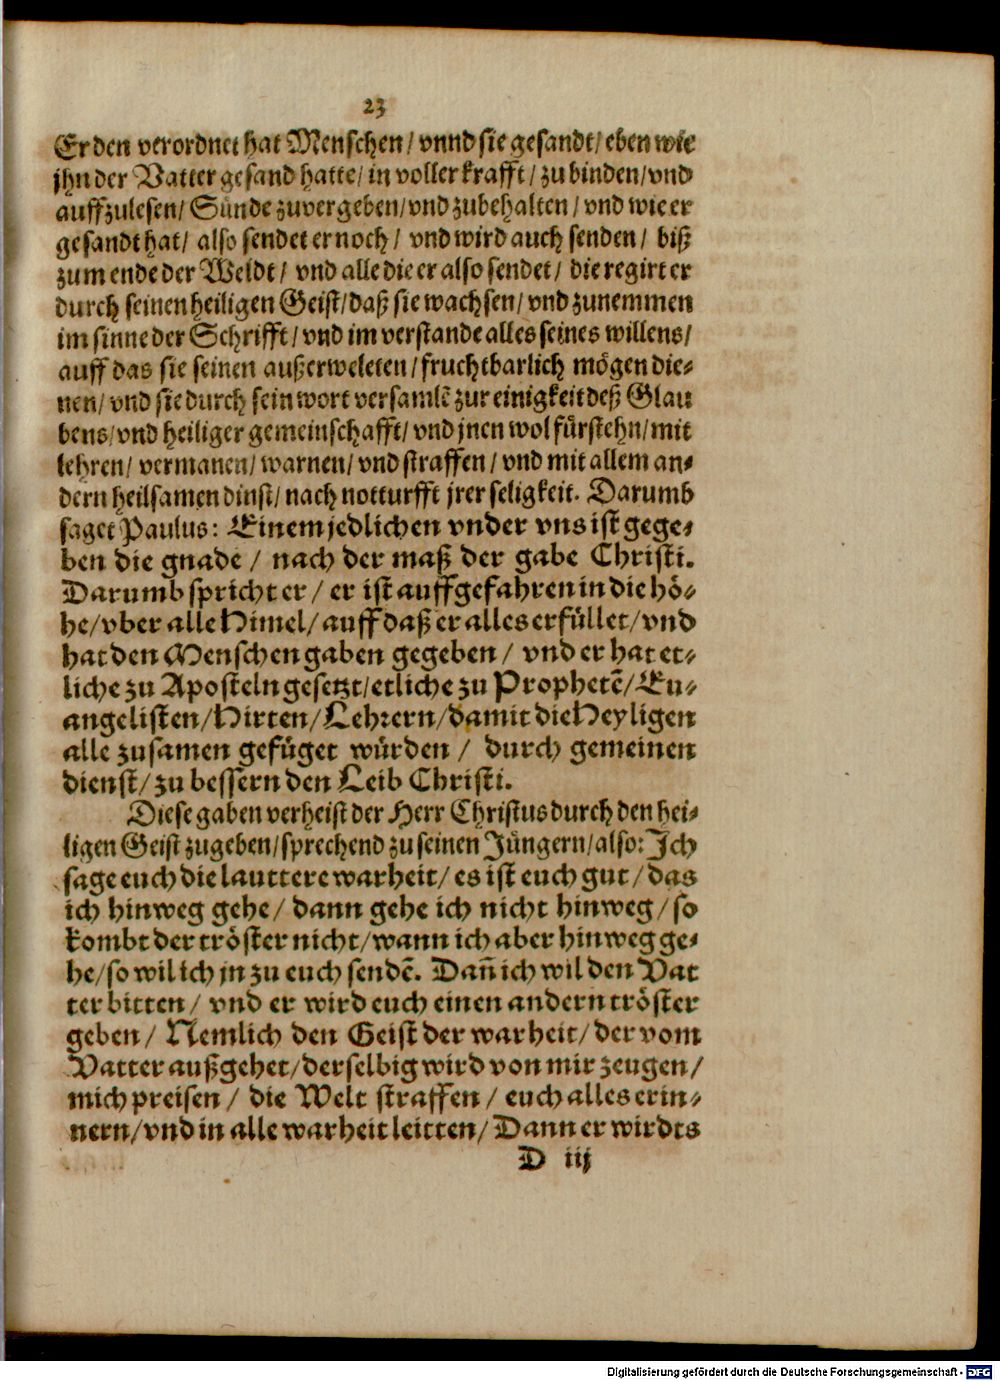 23
Er den verordnet hat Menschen/ vnnd sie gesandt/ eben wie
jhn der Vatter gesand hatte/ in voller krafft/ zu binden/ vnd
auffzulesen/ Sünde zuvergeben/ vnd zubehalten/ vnd wie er
gesandt hat/ also sendet er noch/ vnd wird auch senden/ biß
zum ende der Weldt/ vnd alle die er also sendet/ die regirt er
durch seinen heiligen Geist/ daß sie wachsen/ vnd zunemmen
im sinne der Schrifft/ vnd im verstande alles seines willens/
auff das sie seinen außerweleten/ fruchtbarlich mögen die-
nen/ vnd sie durch sein wort versamlē zur einigkeit deß Glau
bens/ vnd heiliger gemeinschafft/ vnd jnen wol fürstehn/ mit
lehren/ vermanen/ warnen/ vnd straffen/ vnd mit allem an-
dern heilsamen dinst/ nach notturfft jrer seligkeit. Darumb
saget Paulus: Einem jedlichen vnder vns ist gege-
ben die gnade/ nach der maß der gabe Christi.
Darumb spricht er/ er ist auffgefahren in die hö-
he/ vber alle Himel/ auff daß er alles erfüllet/ vnd
hat den Menschen gaben gegeben/ vnd er hat et-
liche zu Aposteln gesetzt/ etliche zu Prophetē/ Eu-
angelisten/ Hirten/ Lehrern/ damit die Heyligen
alle zusamen gefüget würden/ durch gemeinen
dienst/ zu bessern den Leib Christi.
Diese gaben verheist der Herr Christus durch den hei-
ligen Geist zugeben/ sprechend zu seinen Jüngern/ also: Ich
sage euch die lauttere warheit/ es ist euch gut/ das
ich hinweg gehe/ dann gehe ich nicht hinweg/ so
kombt der tröster nicht/ wann ich aber hinweg ge-
he/ so wil ich jn zu euch sendē. Dan̄ ich wil den Vat
ter bitten/ vnd er wird euch einen andern tröster
geben/ Nemlich den Geist der warheit/ der vom
Vatter außgehet/ derselbig wird von mir zeugen/
mich preisen/ die Welt straffen/ euch alles erin-
nern/ vnd in alle warheit leitten/ Dann er wirdts
D iij
Digitalisierung gefördert durch die Deutsche Forschungsgemeinschaft - DFG